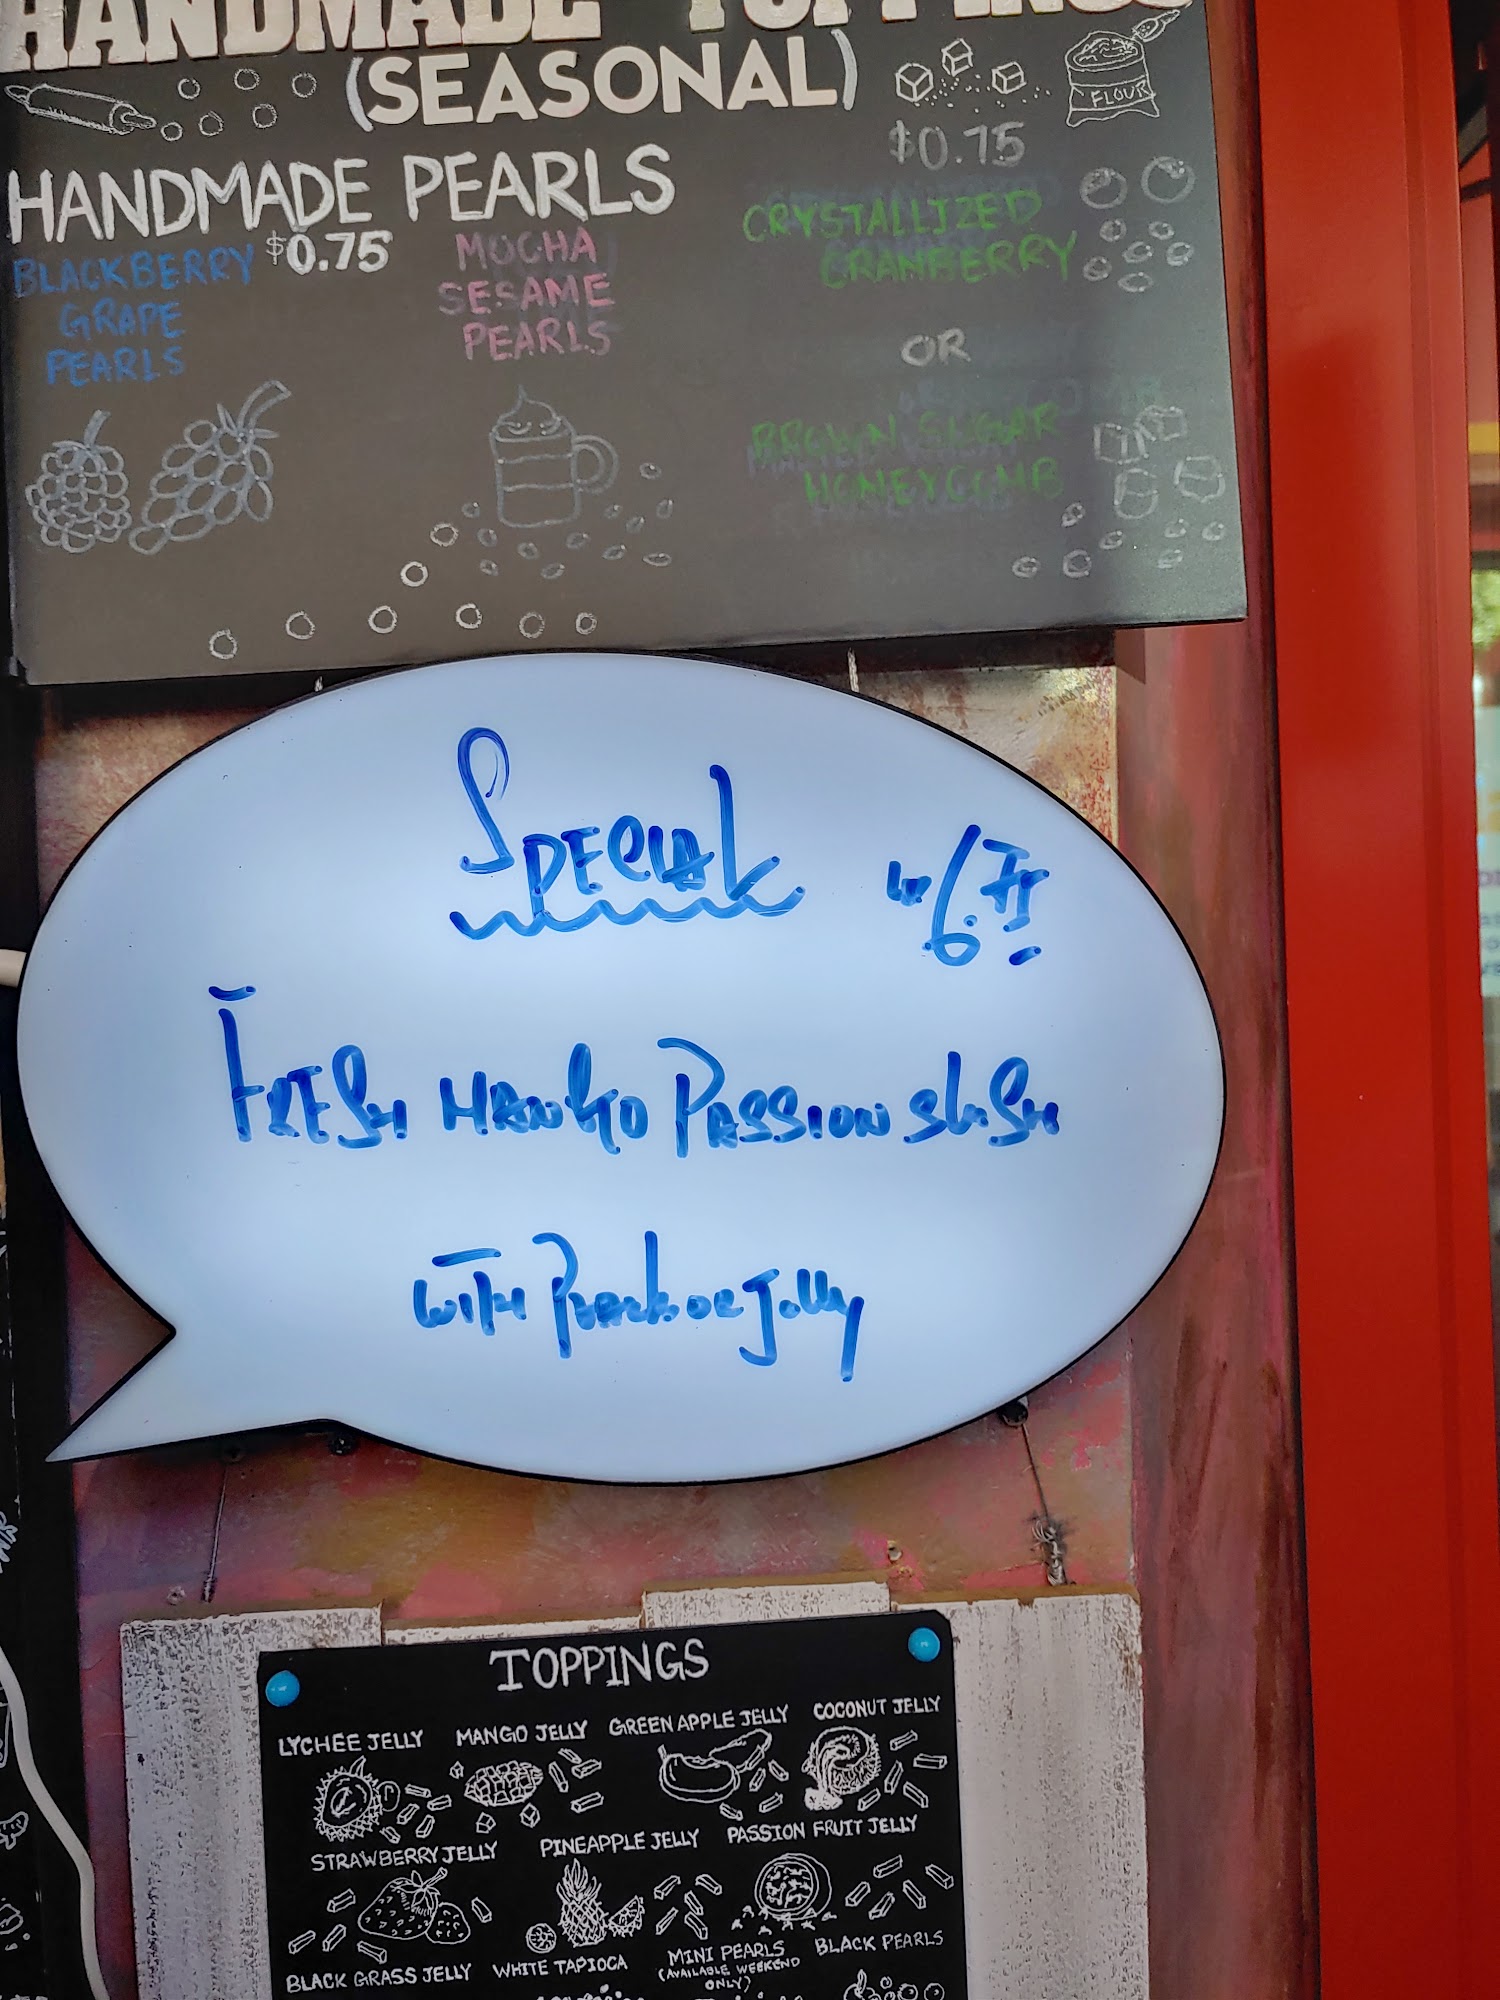 HANDMADE TOPPINGS
(SEASONAL)
FLOUR
HANDMADE PEARLS
$0.75
BLACKBERRY
GRAPE
PEARLS
$0.75
MOCHA
SESAME
PEARLS
CRYSTALLIZED
CRANBERRY
OR
BROWN SUGAR
HONEYCOMB
SPECIAL
FRESH MANGO PASSION SLUSH
WITH PEARL OR Jelly
TOPPINGS
LYCHEE JELLY MANGO JELLY GREEN APPLE JELLY COCONUT JELLY
STRAWBERRY JELLY PINEAPPLE JELLY PASSION FRUIT JELLY
BLACK GRASS JELLY WHITE TAPIOCA MINI PEARLS BLACK PEARLS
(AVAILABLE WEEKEND
ONLY)